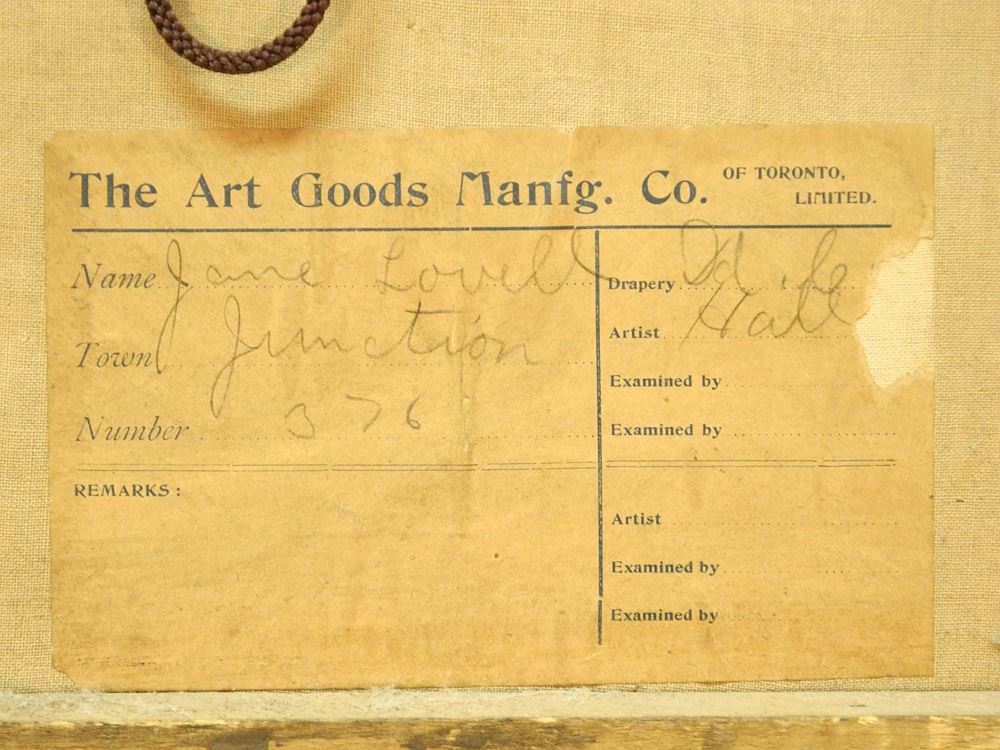 The Art Goods Manfg. Co. OF TORONTO, LIMITED.
Name Jane Lovell
Town Junction
Number 376
REMARKS:
Drapery
Artist Hall
Examined by
Examined by
Artist
Examined by
Examined by